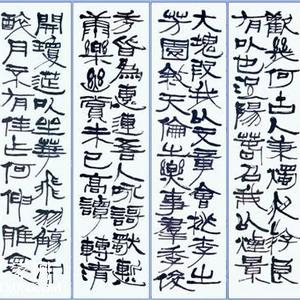 歡幾何古人秉燭夜游良
有以也況陽春召我以煙景
大塊假我以文章會桃李之
芳園敘天倫之樂事羣季俊
秀皆為惠連吾人詠歌獨慚
康樂幽賞未已高談轉清
開瓊筵以坐華飛羽觴而
醉月不有佳作何伸雅懷